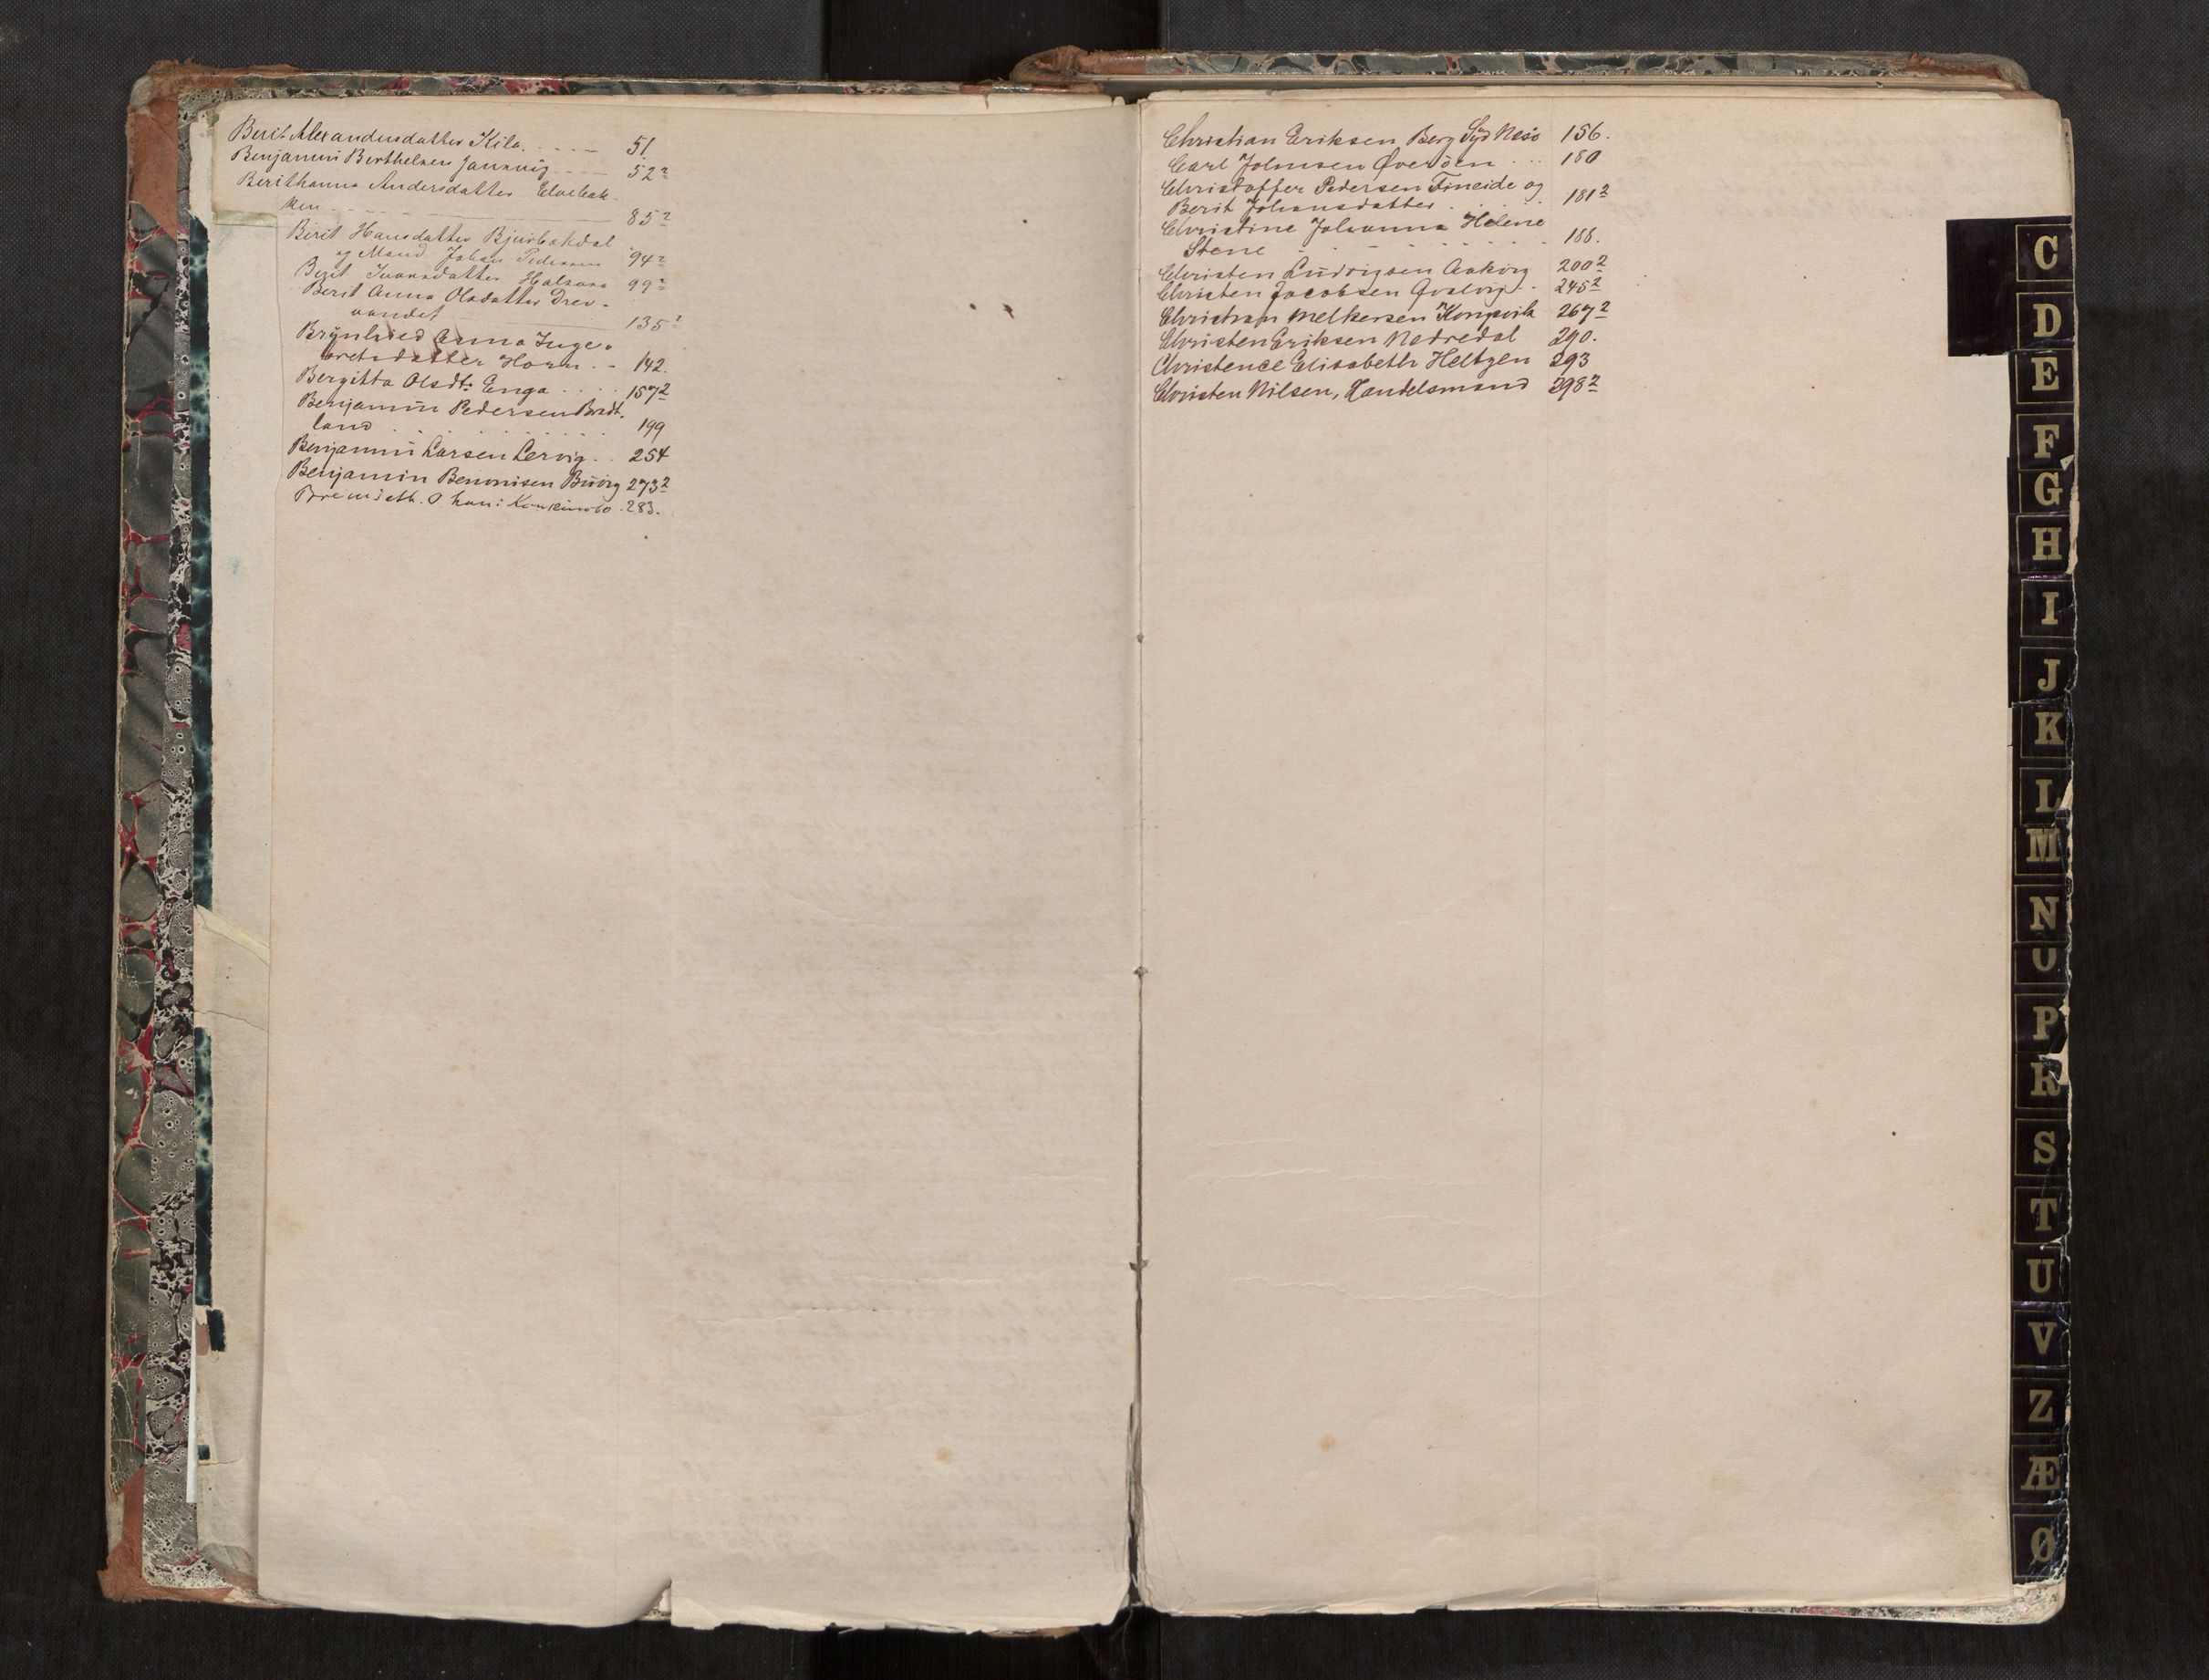 Berit Alexandersdatter Kila 51.
Benjamin Berthelsen 52²
Berithanna Andersdatter Elvebak-
ken 85²
Berit Hansdatter Bjurbækdal
og Mand Johan Pedersen 94²
Berit Ivarsdatter 99²
Berit Anna Olsdatter Drev-
vandet 135²
Brynhild Anna Inge-
bretsdatter Horn 142.
Bergitta Olsdt: Enga 157²
Benjamin Pedersen Bredt-
land 199
Benjamin Larsen Lervig 254
Benjamin Benonisen 273²
283.
Christian Eriksen Berg Syd Nesö 156.
Carl Johnsen Översen 180
Christoffer Pedersen Fineide og
Berit Johansdatter 181²
Christine Johanna Helene
Stene 188.
Christen Ludvigsen Aakvig 200²
Christen Jacobsen Qvalvig 245²
Christian Melkersen Kongsvik 267²
Christen Eriksen Nedredal 290.
Christence Elisabeth Heltzen 293
Christen Nilsen, Handelsmand 298²
C
D
E
F
G
H
I
J
K
L
M
N
O
P
R
S
T
U
V
Z
Æ
Ø